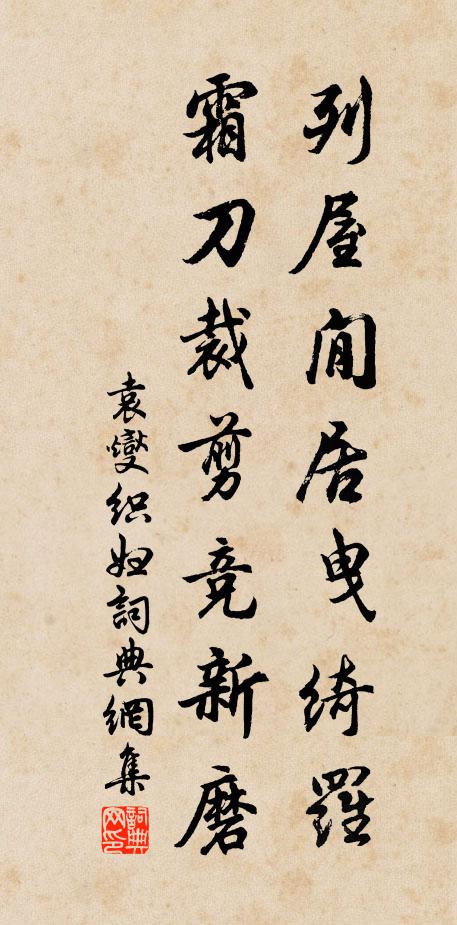 列屋閒居曳綺羅
霜刀裁剪竞新磨
袁燮织妇詞典網集
詞典网印